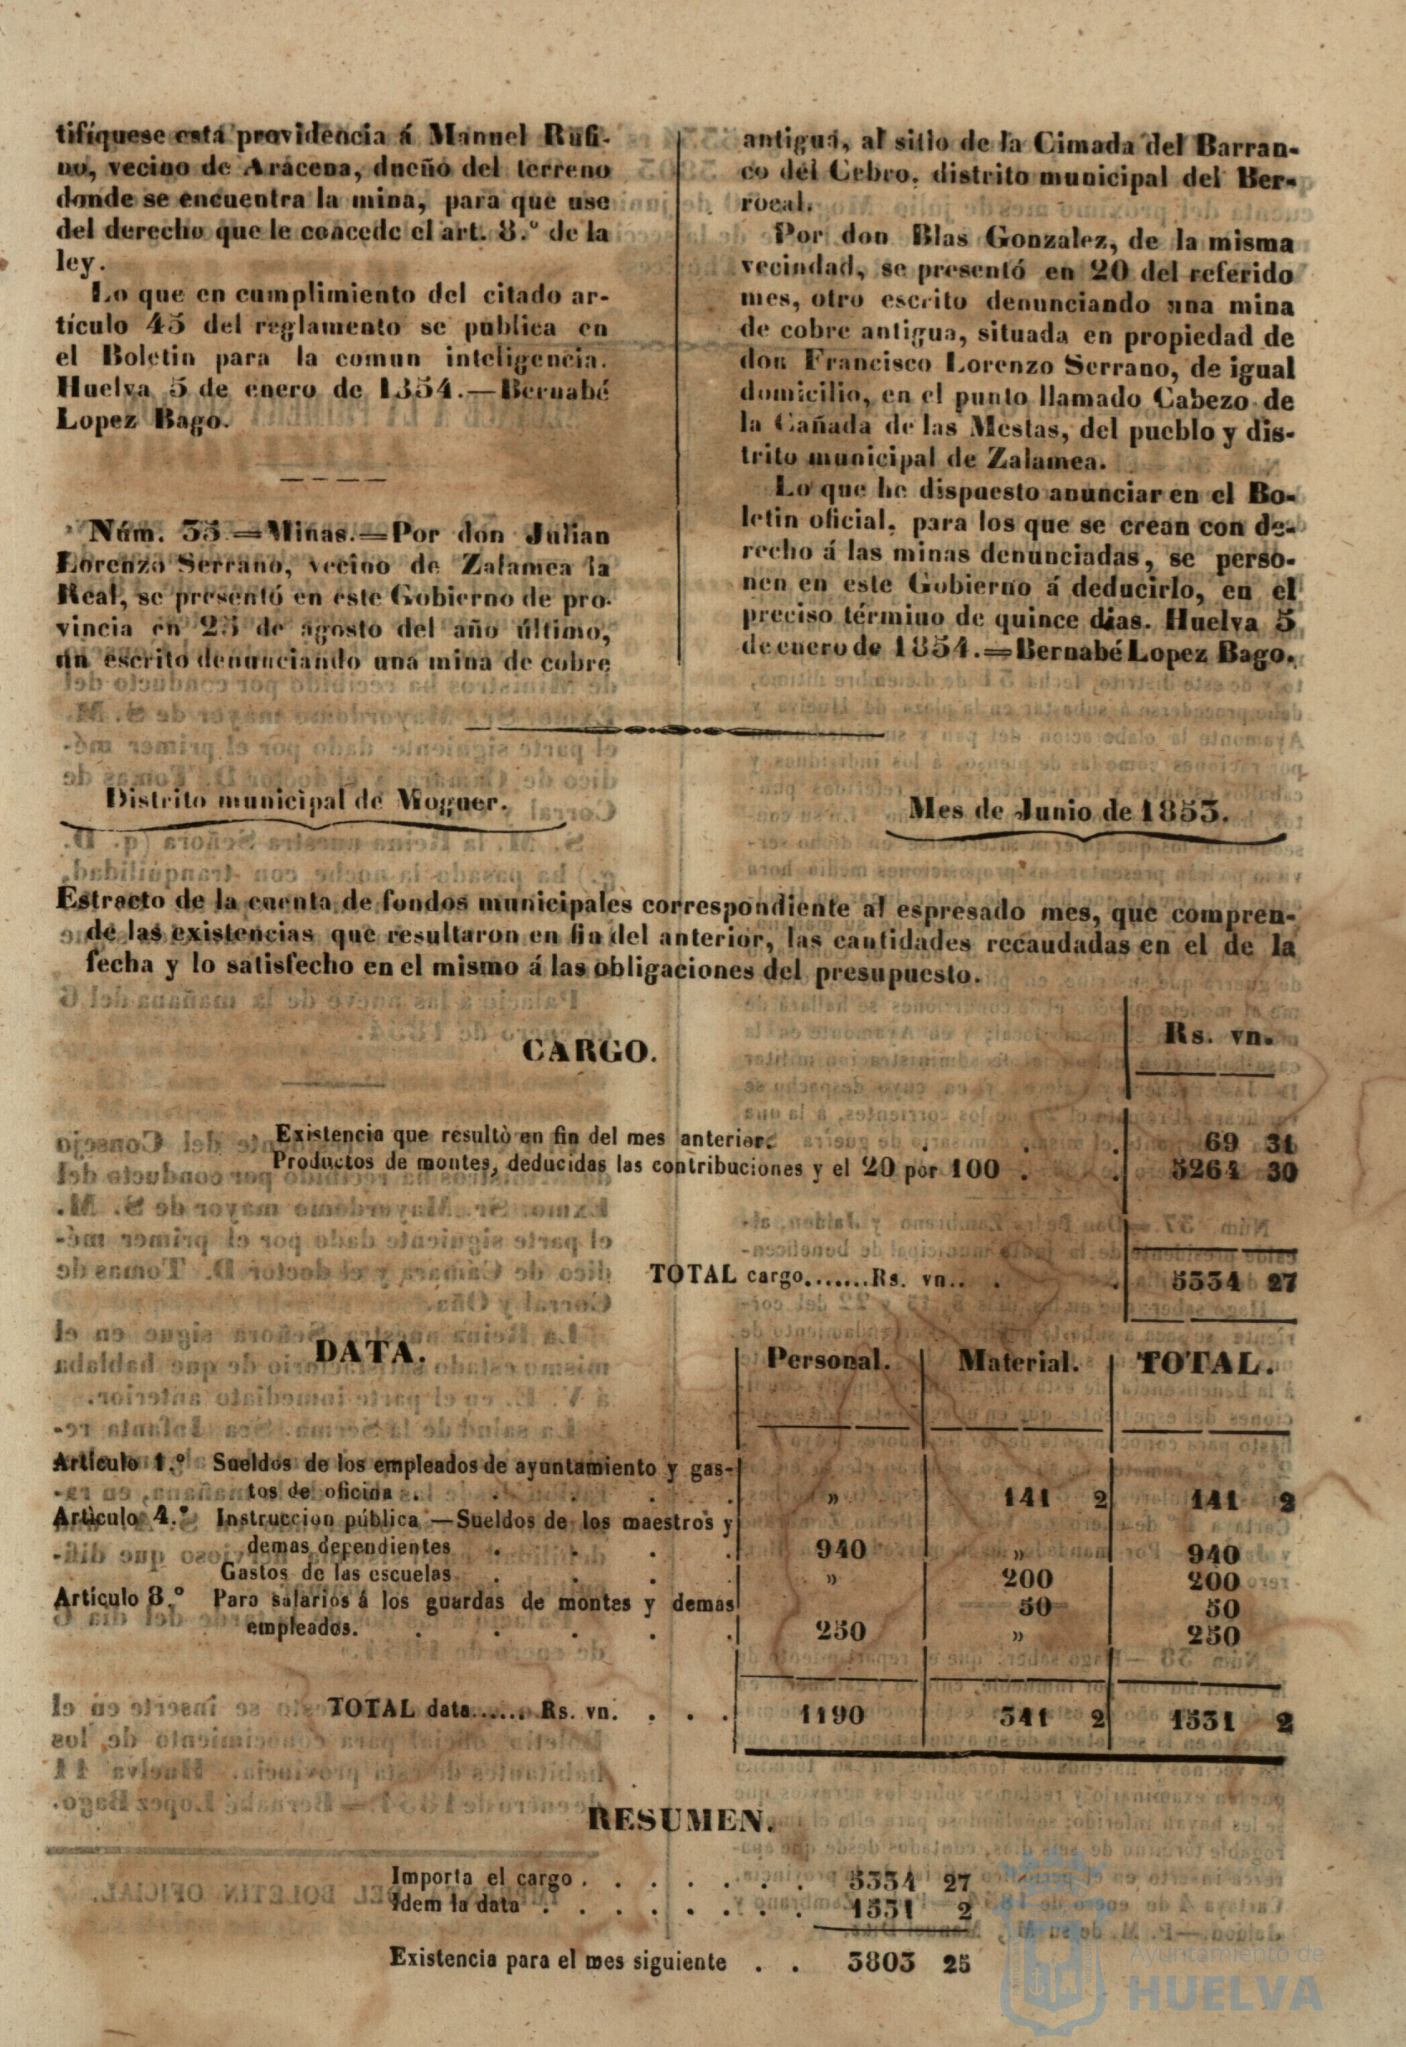 tifíquese esta providencia á Manuel Rufi-
no, vecino de Aracena, dueño del terreno
donde se encuentra la mina, para que use
del derecho que le concede el art. 8.º de la
ley.
Lo que en cumplimiento del citado ar-
tículo 45 del reglamento se publica en
el Boletin para la comun inteligencia.
Huelva 5 de enero de 1854.—Bernabé
Lopez Bago.
Núm. 35.—Minas.—Por don Julian
Lorenzo Serrano, vecino de Zalamea la
Real, se presentó en este Gobierno de pro-
vincia en 23 de agosto del año último,
un escrito denunciando una mina de cobre
antigua, al sitio de la Cimada del Barran-
co del Cebro, distrito municipal del Ber-
rocal.
Por don Blas Gonzalez, de la misma
vecindad, se presentó en 20 del referido
mes, otro escrito denunciando una mina
de cobre antigua, situada en propiedad de
don Francisco Lorenzo Serrano, de igual
domicilio, en el punto llamado Cabezo de
la Cañada de las Mestas, del pueblo y dis-
trito municipal de Zalamea.
Lo que he dispuesto anunciar en el Bo-
letin oficial, para los que se crean con de-
recho á las minas denunciadas, se perso-
nen en este Gobierno á deducirlo, en el
preciso término de quince dias. Huelva 5
de enero de 1854.—Bernabé Lopez Bago.
Distrito municipal de Moguer.
Mes de Junio de 1853.
Estracto de la cuenta de fondos municipales correspondiente al espresado mes, que compren-
de las existencias que resultaron en fin del anterior, las cantidades recaudadas en el de la
fecha y lo satisfecho en el mismo á las obligaciones del presupuesto.
CARGO.
Rs. vn.
Existencia que resultò en fin del mes anterior. . . . 69 31
Productos de montes, deducidas las contribuciones y el 20 por 100 . . 5264 30
TOTAL cargo.......Rs. vn.. . . 5334 27
DATA.
Personal. Material. TOTAL.
Artículo 1.º Sueldos de los empleados de ayuntamiento y gas-
tos de oficina . . . . . » 141 2 141 2
Artìculo 4.º Instruccion pública —Sueldos de los maestros y
demas dependientes . . . . 940 » 940
Gastos de las escuelas . . . . » 200 200
50 50
Artículo 8.º Para salarios á los guardas de montes y demas
empleados. . . . . . 250 » 250
TOTAL data...... Rs. vn. . . . 1190 341 2 1531 2
RESUMEN.
Importa el cargo . . . . . . . 5334 27
Idem la data . . . . . . . . 1531 2
Existencia para el mes siguiente . . 3803 25
Ayuntamiento de
HUELVA